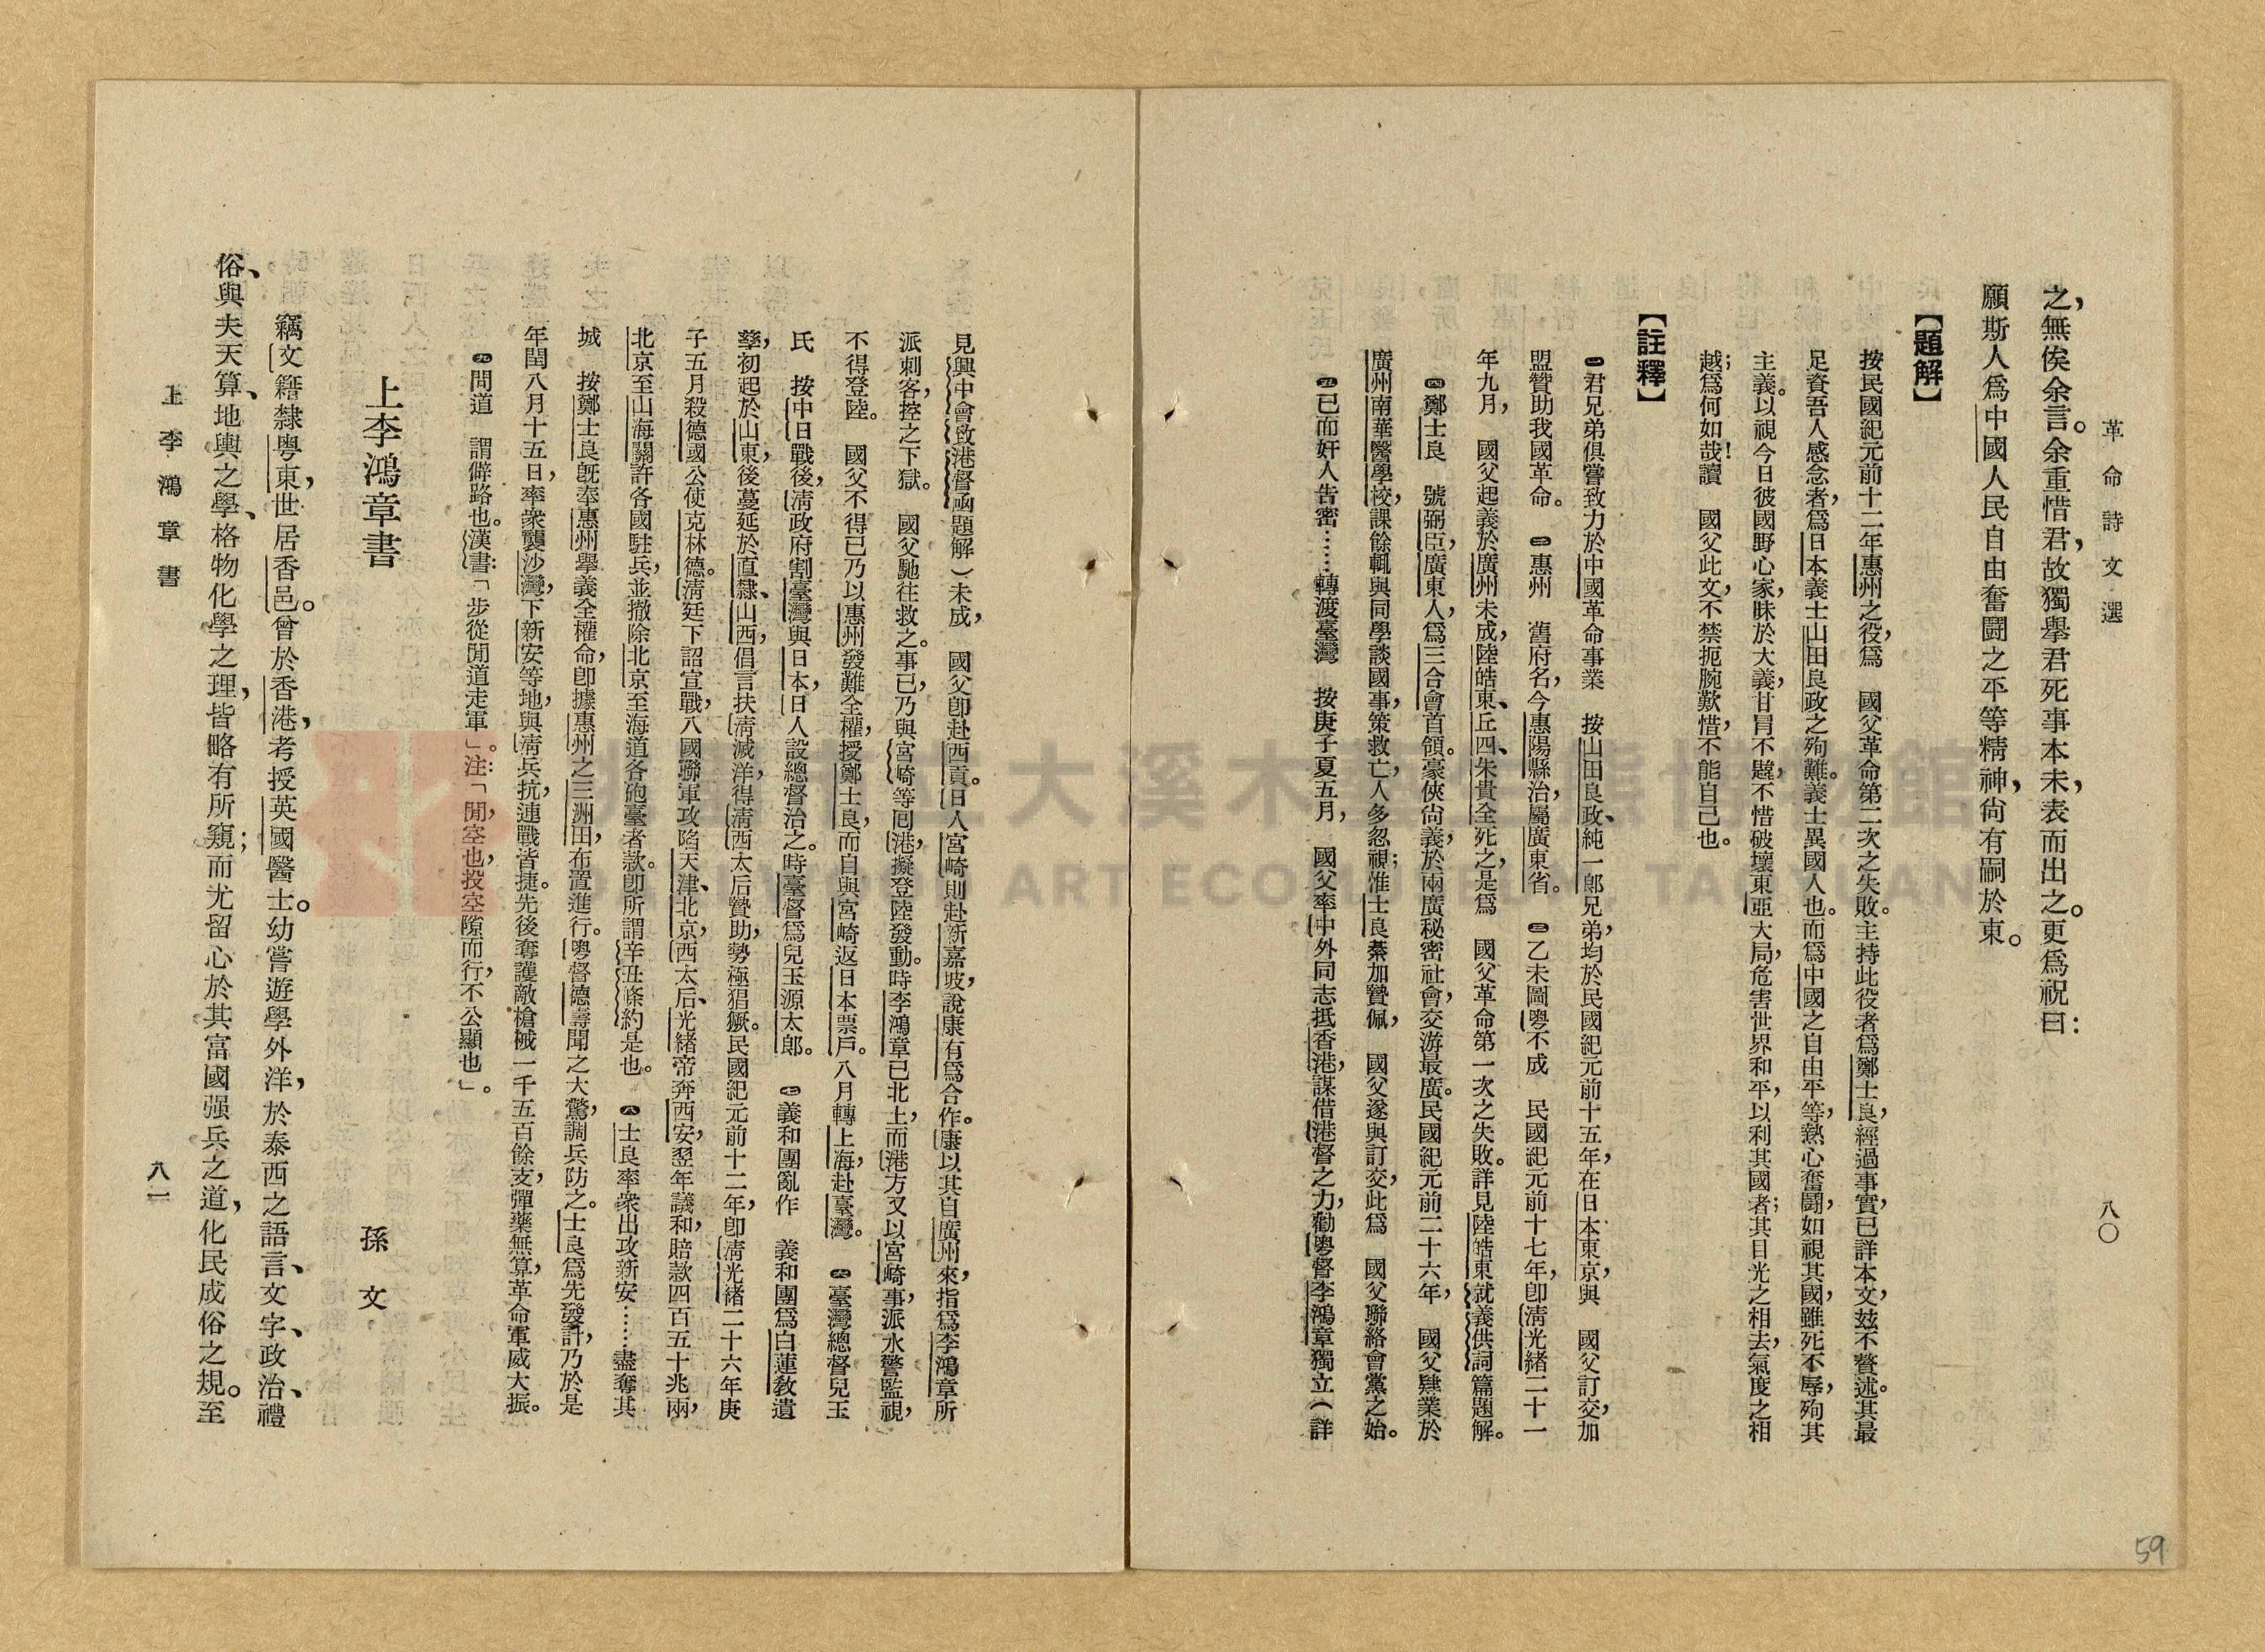 革命詩文選
八〇
之,無俟余言。余重惜君,故獨舉君死事本未,表而出之。更爲祝曰:
願斯人爲中國人民自由奮鬪之平等精神,尙有嗣於東。
【題解】
按民國紀元前十二年惠州之役,爲 國父革命第二次之失敗。主持此役者爲鄭士良,經過事實,已詳本文,玆不贅述。其最
足資吾人感念者,爲日本義士山田良政之殉難。義士異國人也。而爲中國之自由平等,熱心奮鬪,如視其國,雖死不辱,殉其
主義。以視今日彼國野心家,昧於大義,甘冒不韙,不惜破壞東亞大局,危害世界和平,以利其國者;其目光之相去,氣度之相
越;爲何如哉!讀 國父此文,不禁扼腕歎惜,不能自己也。
【註釋】
㊀君兄弟俱嘗致力於中國革命事業 按山田良政、純一郎兄弟,均於民國紀元前十五年,在日本東京,與 國父訂交,加
盟贊助我國革命。 ㊁惠州 舊府名,今惠陽縣治,屬廣東省。 ㊂乙未圖粵不成 民國紀元前十七年,卽淸光緒二十一
年九月, 國父起義於廣州未成,陸皓東、丘四、朱貴全死之,是爲 國父革命第一次之失敗。詳見陸皓東就義供詞篇題解。
㊃鄭士良 號弼臣,廣東人,爲三合會首領。豪俠尙義,於兩廣秘密社會,交游最廣。民國紀元前二十六年, 國父肄業於
廣州南華醫學校,課餘輒與同學談國事,策救亡,人多忽視;惟士良纂加贊佩, 國父遂與訂交,此爲 國父聯絡會黨之始。
㊄已而奸人告密……轉渡臺灣 按庚子夏五月, 國父率中外同志抵香港,謀借港督之力,勸粵督李鴻章獨立(詳
見興中會致港督函題解)未成, 國父卽赴西貢。日人宮崎則赴新嘉坡,說康有爲合作。康以其自廣州來,指爲李鴻章所
派刺客,控之下獄。 國父馳往救之。事已,乃與宮崎等囘港,擬登陸發動。時李鴻章已北上,而港方又以宮崎事,派水警監視,
不得登陸。 國父不得已乃以惠州發難全權,授鄭士良,而自與宮崎返日本票戶。八月轉上海,赴臺灣。 ㊅臺灣總督兒玉
氏 按中日戰後,淸政府割臺灣與日本,日人設總督治之。時臺督爲兒玉源太郎。 ㊆義和團亂作 義和團爲白蓮敎遺
孽,初起於山東,後蔓延於直隸、山西,倡言扶淸滅洋,得淸西太后贊助,勢極猖獗。民國紀元前十二年,卽淸光緒二十六年庚
子五月殺德國公使克林德。淸廷下詔宣戰,八國聯軍攻陷天津、北京,西太后、光緒帝奔西安,翌年議和,賠款四百五十兆兩,
北京至山海關許各國駐兵,並撤除北京至海道各砲臺者款。卽所謂辛丑條約是也。 ㊇士良率衆出攻新安……盡奪其
城 按鄭士良旣奉惠州舉義全權命,卽據惠州之三洲田,布置進行。粵督德壽聞之大驚,調兵防之。士良爲先發計,乃於是
年閏八月十五日,率衆襲沙灣,下新安等地,與淸兵抗,連戰皆捷。先後奪護敵槍械一千五百餘支,彈藥無算,革命軍威大振。
㊈間道 謂僻路也。漢書:「步從間道走軍」。注:「間,空也,投空隙而行,不公顯也」。
上李鴻章書
孫文
竊文籍隸粵東,世居香邑。曾於香港,考授英國醫士。幼嘗遊學外洋,於泰西之語言、文字、政治、禮
俗、與夫天算、地輿之學、格物化學之理,皆略有所窺;而尤留心於其富國强兵之道,化民成俗之規。至
上李鴻章書
八一
59
桃園市立大溪木藝生態博物館
DAXI WOOD ART ECOMUSEUM, TAOYUAN